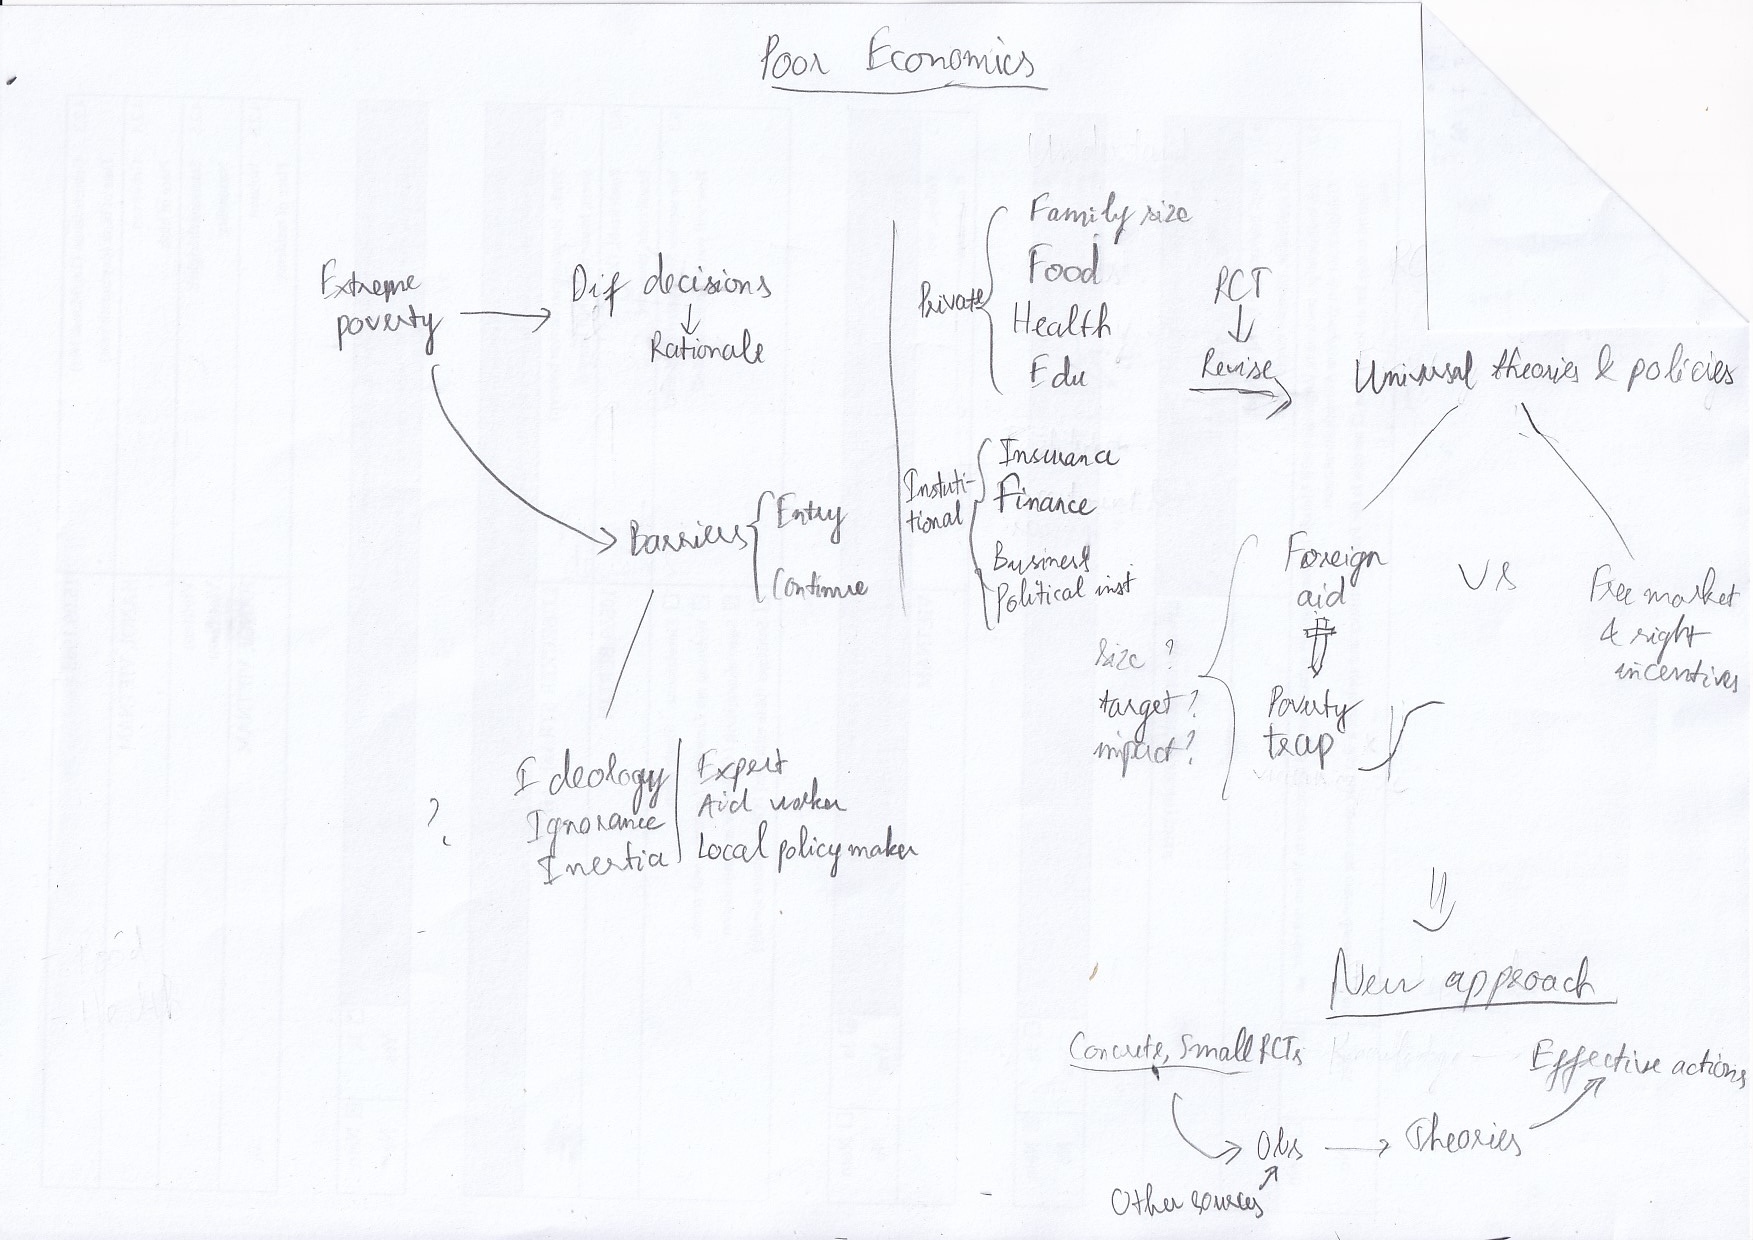 Poor Economics
Extreme
poverty
Dif decisions
Rationale
Barriers
Entry
Continue
Ideology
Ignorance
Inertia
Expert
Aid worker
Local policy maker
?
Private
Family size
Food
Health
Edu
Instuti-
tional
Insurance
Finance
Business
Political inst
RCT
Revise
Universal theories & policies
Foreign
aid
Poverty
trap
Size ?
target ?
impact ?
VS
Free market
& right
incentives
New approach
Concrete, Small RCTs
Obs
Other sources
Theories
Effective actions